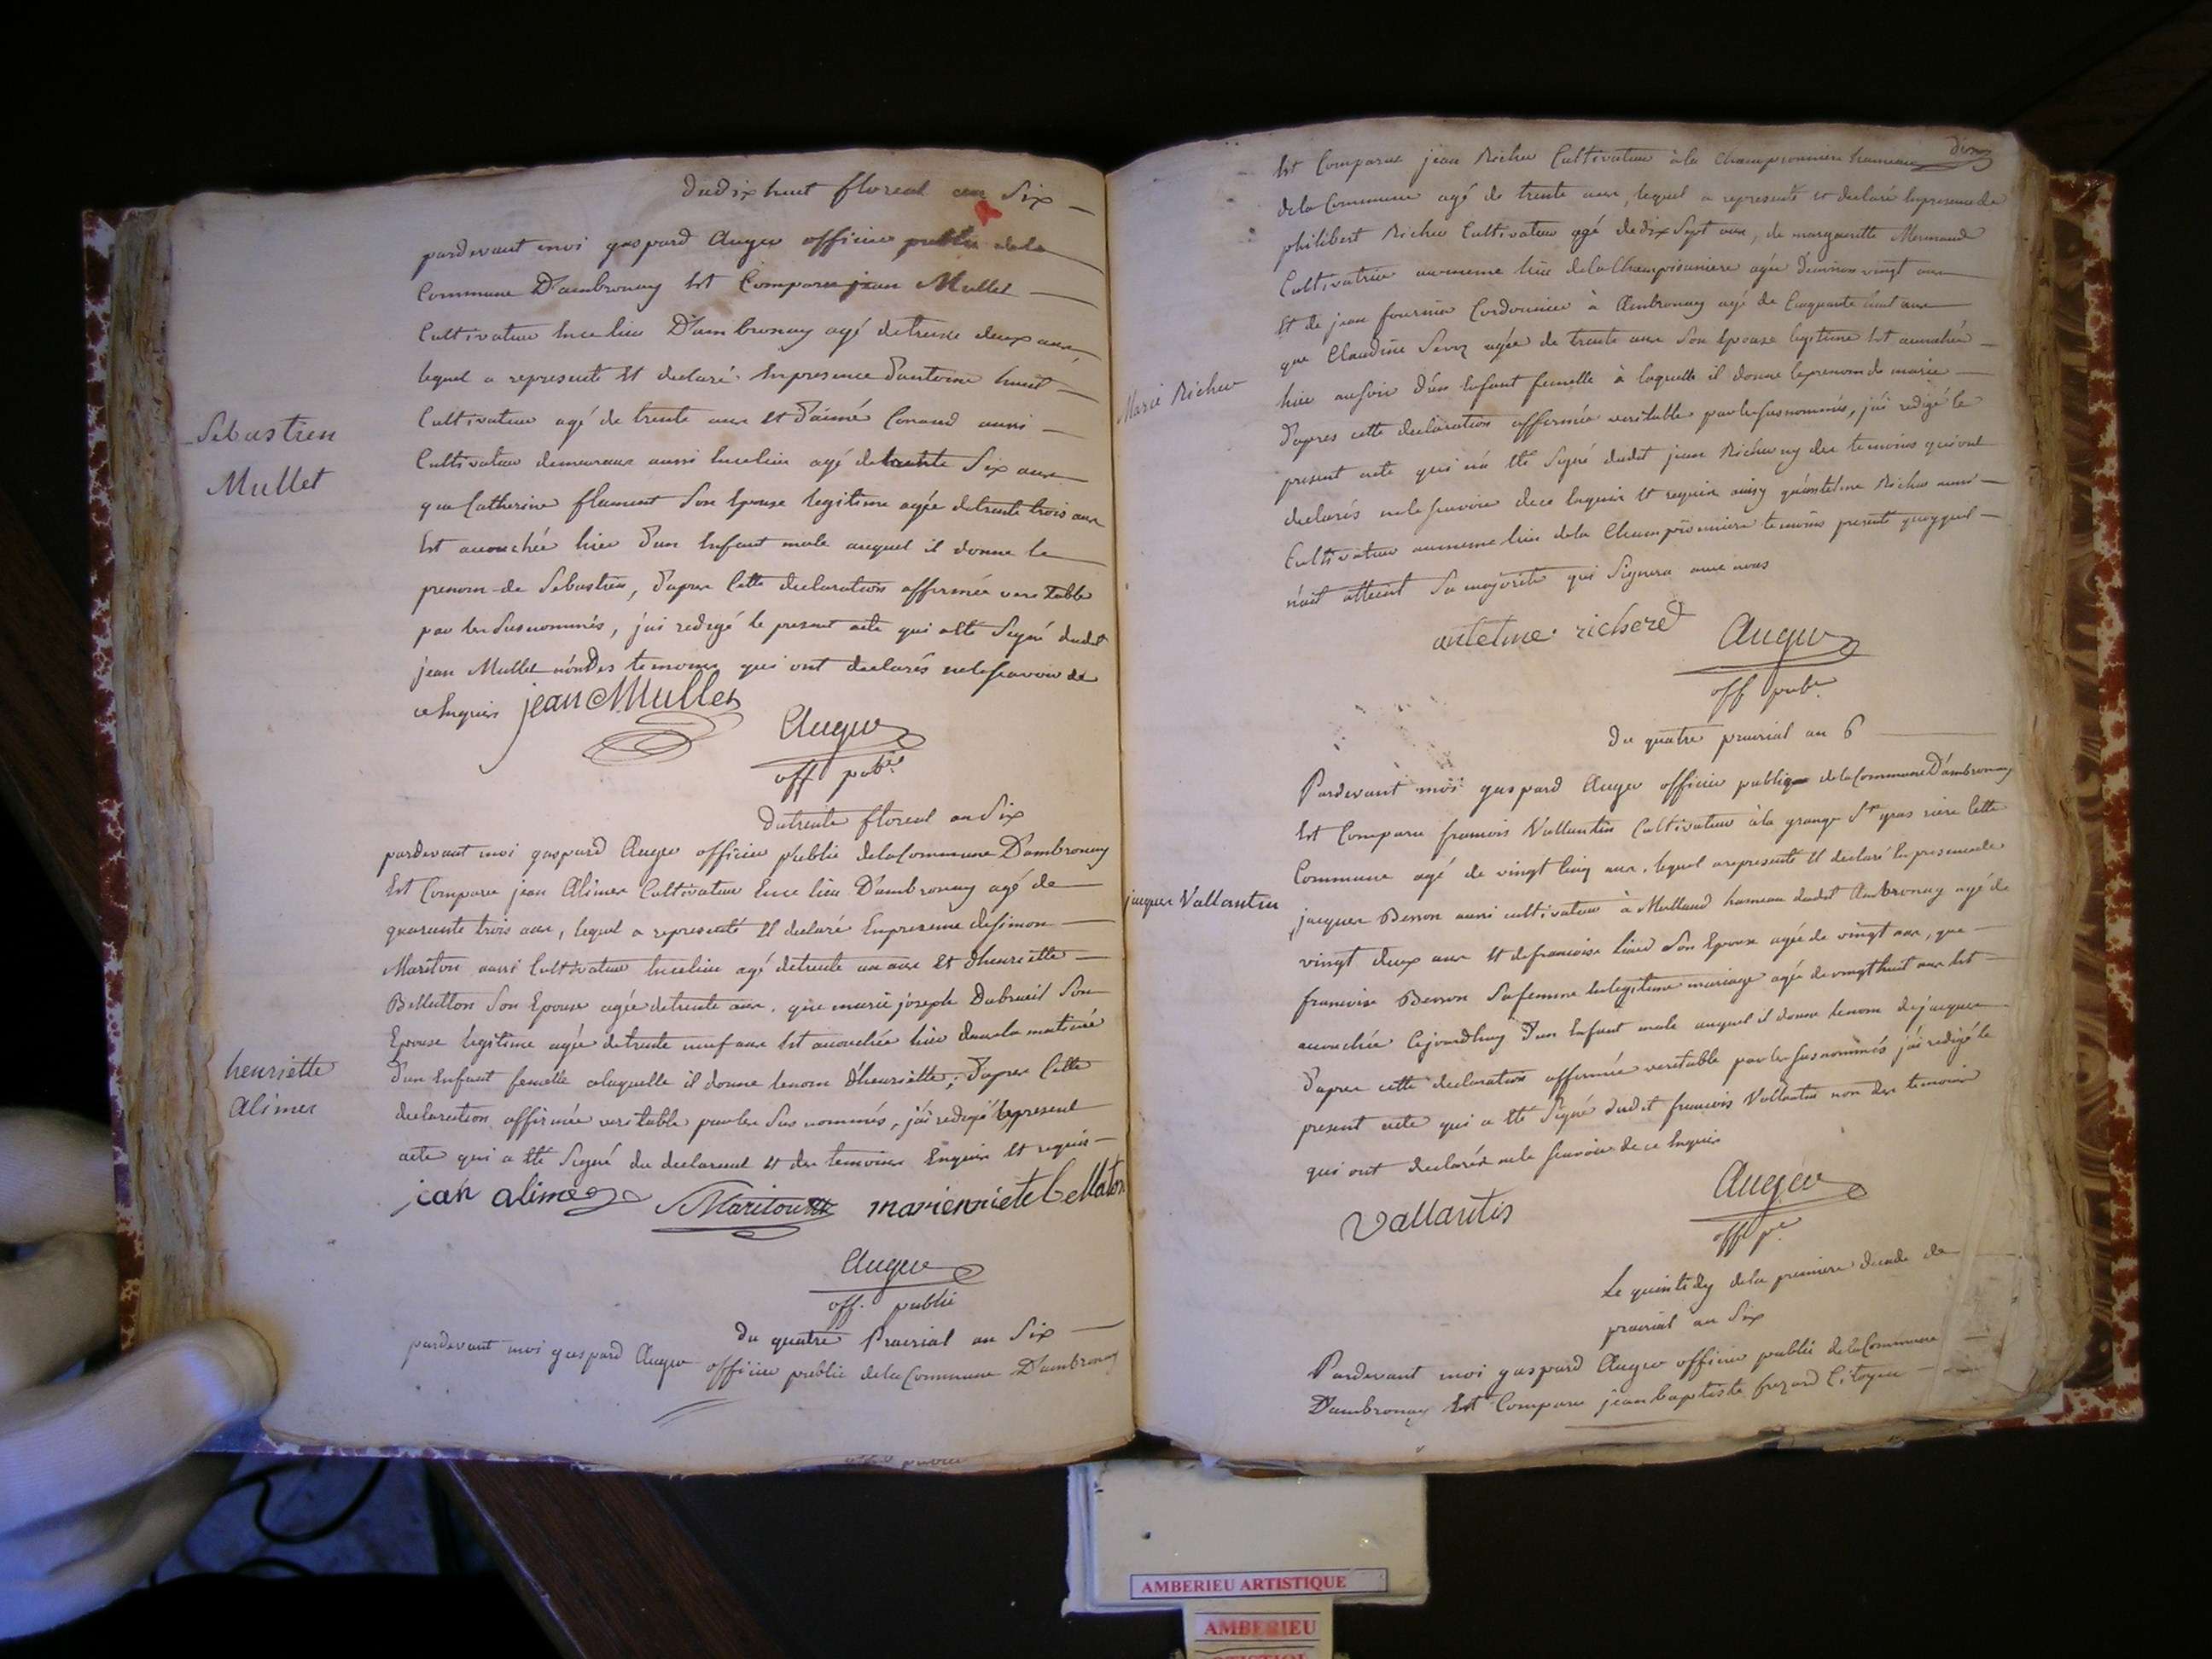 du dix huit floreal an Six
pardevant moi gaspard Auger officier public dela
Commune D'ambronay Est Comparu jean Mullet
Cultivateur Encelieu D'ambronay agé detrente deux ans,
lequel a representé Et declaré Enpresence d'antoine
Cultivateur agé de trente ans Et d'aimé Conand aussi
Sebastien
Mullet
Cultivateur demeurans aussi Encelieu agé detrente Six ans
que Catherine flament Son Epouse legitime agée detrente trois ans
Est acouchée hier d'un Enfant male auquel il donne le
prenom de Sebastien, d'apres Cette declaration affirmée veritable
par les Susnommés, j'ai redigé le present acte qui a Eté Signé dudit
jean Mullet non des temoins qui ont declarés nelesçavoir de
ce Enquis jean Mullet
Auger
off pub.
du trente floreal an Six
pardevant moi gaspard Auger officier public delaCommune D'ambronay
Est Comparu jean Alimer Cultivateur Ence lieu D'ambronay agé de
quarente trois ans, lequel a representé Et declaré Enpresence desimon
Mariton aussi Cultivateur Encelieu agé detrente un ans Et d'henriette
Bellatton Son Epouse agée detrente ans, que marie joseph Dubreuil Son
Epouse legitime agée detrente neuf ans Est acouchée hier dans la matinée
henriette
Alimer
d'un Enfant femelle alaquelle il donne lenom d'henriette; d'apres Cette
declaration affirmée veritable par les Sus nommés, j'ai redigé lepresent
acte qui a Eté Signé du declarant Et des temoins Enquis Et requis
jean alimer Mariton marienriete bellaton
Auger
off. public
du quatre Prairial an Six
pardevant moi gaspard Auger officier public dela Commune D'ambronay
Est Comparu jean Richer Cultivateur à la Championniere hameau
dela Commune agé de trente ans, lequel a representé et declaré Enpresence de
philibert Richer Cultivateur agé dedix Sept ans, de margueritte Mermand
Cultivatrice aumeme lieu delaChampioniere agée d'environ vingt ans
Et de jean fournier Cordonnier à Ambronay agé de Cinquante huit ans
que Claudine Servoz agée de trente ans Son Epouse legitime Est acouchée
Marie Richer
hier ausoir d'un Enfant femelle à laquelle il donne leprenom de marie
d'apres cette declaration affirmée veritable par les susnommés, j'ai redigé le
present acte qui n'a Eté Signé dudit jean Richer ny des temoins qui ont
declarés nele sçavoir dece Enquis Et requis ainsy qu'antelme Richer aussi
Cultivateur aumeme lieu dela Championniere temoins presents quoyquil
n'ait atteint Sa majorité qui Signera avec nous
antelme richerd Auger
off pub.
du quatre prairial an 6
Pardevant moi gaspard Auger officier publique delaCommune D'ambronay
Est Comparu francois Vallantin Cultivateur à la grange rière Cette
Commune agé de vingt Cinq ans, lequel a representé Et declaré Enpresence de
jacques Vallantin
jacques Besson aussi cultivateur à Merland hameau dudit Ambronay agé de
vingt deux ans Et defrancoise Son Epouse agée de vingt ans, que
francoise Besson Safemme Enlegitime mariage agée de vingthuit ans Est
acouchée Cejourdhuy d'un Enfant male auquel il donne lenom de jacques
d'apres cette declaration affirmée veritable par les susnommés j'ai redigé le
present acte qui a Eté Signé dudit francois Vallantin non des temoins
qui ont declarés nele sçavoir de ce Enquis
Vallantin Auger
off
Le quintidy dela premiere decade de
prairial an Six
Pardevant moi gaspard Auger officier public dela Commune
D'ambronay Est Comparu jean baptiste frezard Citoyen
AMBERIEU ARTISTIQUE
AMBERIEU